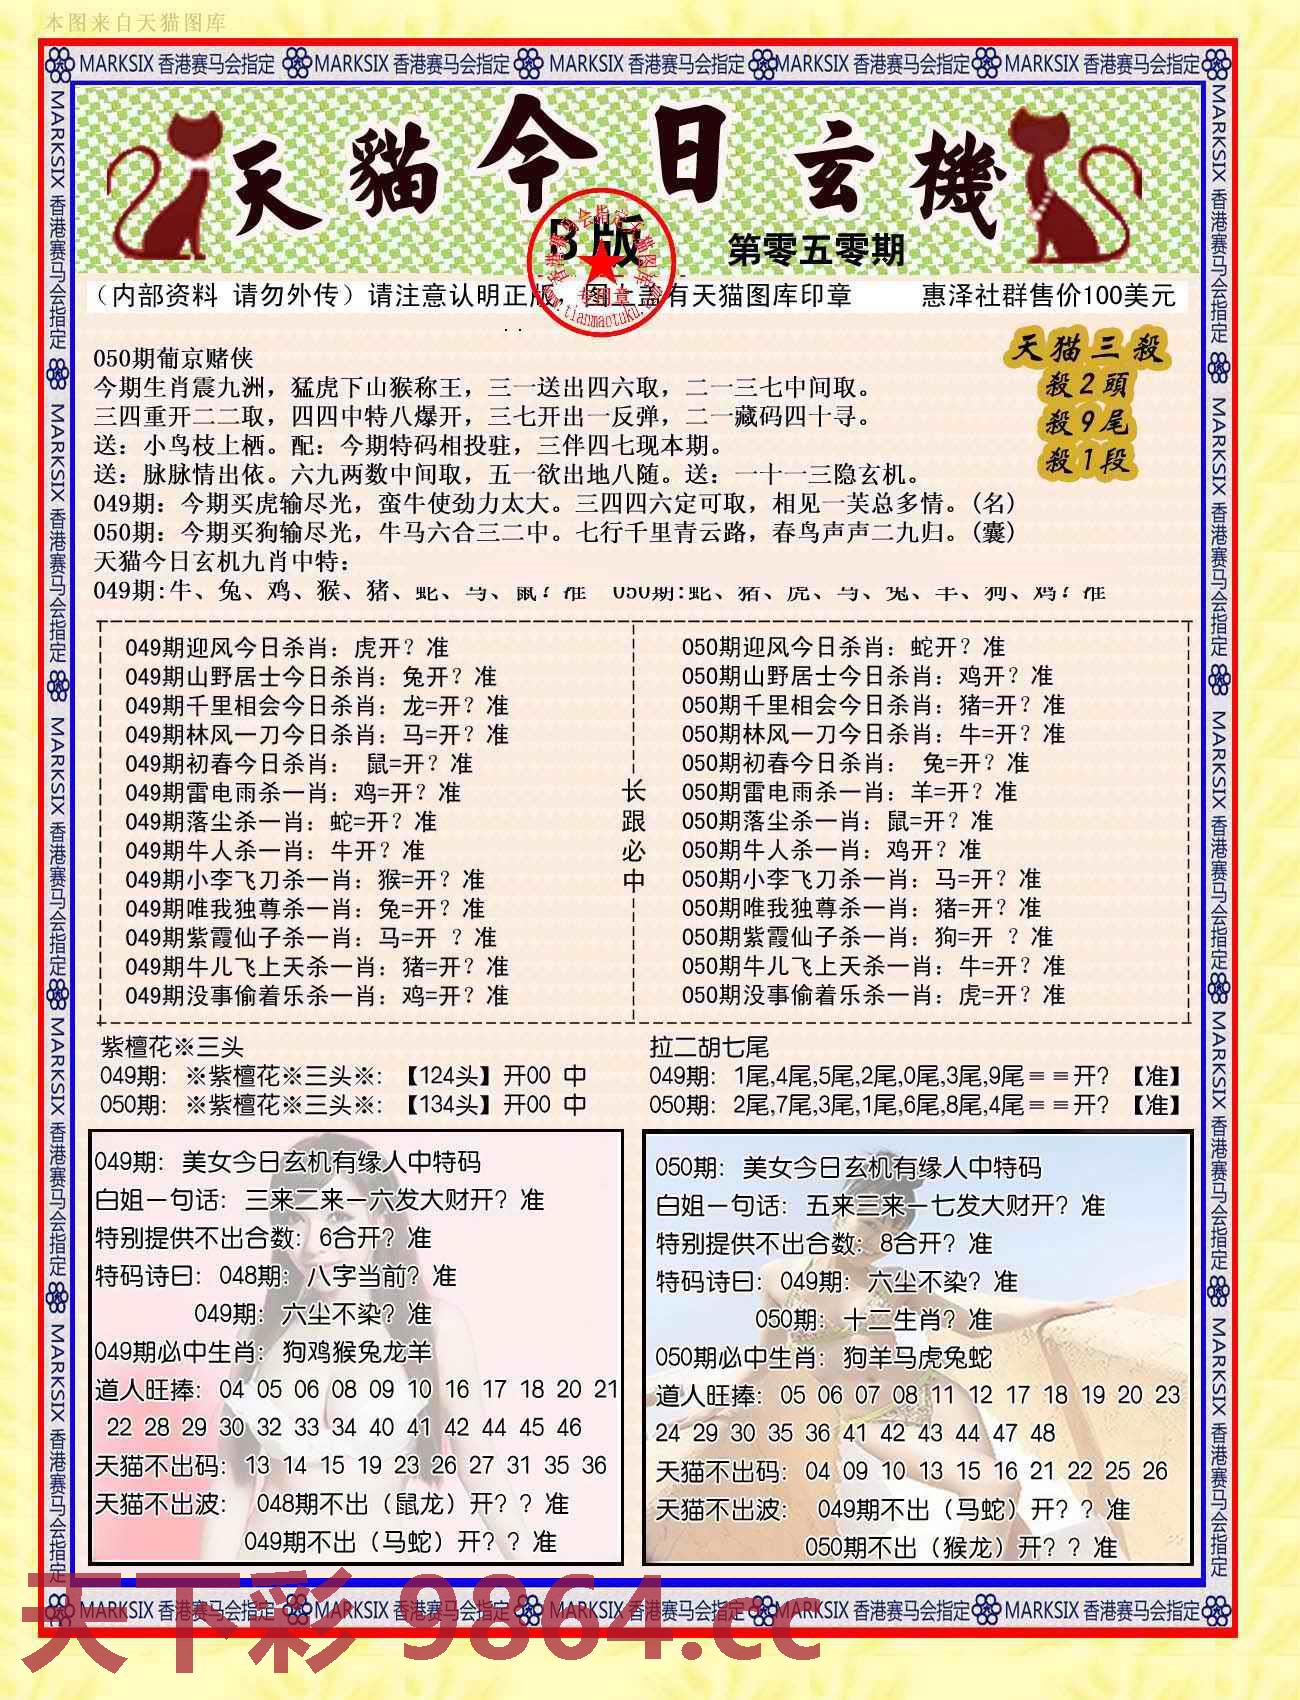 本图来自天猫图库
MARKSIX 香港赛马会指定 MARKSIX 香港赛马会指定 MARKSIX 香港赛马会指定 MARKSIX 香港赛马会指定 MARKSIX 香港赛马会指定
MARKSIX 香港赛马会指定 MARKSIX 香港赛马会指定 MARKSIX 香港赛马会指定 MARKSIX 香港赛马会指定 MARKSIX 香港赛马会指定
MARKSIX 香港赛马会指定 MARKSIX 香港赛马会指定 MARKSIX 香港赛马会指定 MARKSIX 香港赛马会指定 MARKSIX 香港赛马会指定
天猫今日玄機
B版
第零五零期
专用章
www.tianmaotuku.com
（内部资料 请勿外传）请注意认明正版，图上盖有天猫图库印章 惠泽社群售价100美元
天猫三殺
殺2頭
殺9尾
殺1段
050期葡京赌侠
今期生肖震九洲，猛虎下山猴称王，三一送出四六取，二一三七中间取。
三四重开二二取，四四中特八爆开，三七开出一反弹，二一藏码四十寻。
送：小鸟枝上栖。配：今期特码相投驻，三伴四七现本期。
送：脉脉情出依。六九两数中间取，五一欲出地八随。送：一十一三隐玄机。
049期：今期买虎输尽光，蛮牛使劲力太大。三四四六定可取，相见一芙总多情。(名)
050期：今期买狗输尽光，牛马六合三二中。七行千里青云路，春鸟声声二九归。(囊)
天猫今日玄机九肖中特：
049期:牛、兔、鸡、猴、猪、蛇、马、鼠？准 050期:蛇、猪、虎、马、兔、羊、狗、鸡？准
049期迎风今日杀肖：虎开？准
049期山野居士今日杀肖：兔开？准
049期千里相会今日杀肖：龙=开？准
049期林风一刀今日杀肖：马=开？准
049期初春今日杀肖： 鼠=开？准
049期雷电雨杀一肖：鸡=开？准
049期落尘杀一肖：蛇=开？准
049期牛人杀一肖：牛开？准
049期小李飞刀杀一肖：猴=开？准
049期唯我独尊杀一肖：兔=开？准
049期紫霞仙子杀一肖：马=开 ？准
049期牛儿飞上天杀一肖：猪=开？准
049期没事偷着乐杀一肖：鸡=开？准
长
跟
必
中
050期迎风今日杀肖：蛇开？准
050期山野居士今日杀肖：鸡开？准
050期千里相会今日杀肖：猪=开？准
050期林风一刀今日杀肖：牛=开？准
050期初春今日杀肖： 兔=开？准
050期雷电雨杀一肖：羊=开？准
050期落尘杀一肖：鼠=开？准
050期牛人杀一肖：鸡开？准
050期小李飞刀杀一肖：马=开？准
050期唯我独尊杀一肖：猪=开？准
050期紫霞仙子杀一肖：狗=开 ？准
050期牛儿飞上天杀一肖：牛=开？准
050期没事偷着乐杀一肖：虎=开？准
紫檀花※三头
049期：※紫檀花※三头※：【124头】开00 中
050期：※紫檀花※三头※：【134头】开00 中
拉二胡七尾
049期：1尾,4尾,5尾,2尾,0尾,3尾,9尾＝＝开？【准】
050期：2尾,7尾,3尾,1尾,6尾,8尾,4尾＝＝开？【准】
049期：美女今日玄机有缘人中特码
白姐一句话：三来二来一六发大财开？准
特别提供不出合数：6合开？准
特码诗曰：048期：八字当前？准
049期：六尘不染？准
049期必中生肖：狗鸡猴兔龙羊
道人旺捧：04 05 06 08 09 10 16 17 18 20 21
22 28 29 30 32 33 34 40 41 42 44 45 46
天猫不出码：13 14 15 19 23 26 27 31 35 36
天猫不出波： 048期不出（鼠龙）开？？准
049期不出（马蛇）开？？准
050期：美女今日玄机有缘人中特码
白姐一句话：五来三来一七发大财开？准
特别提供不出合数：8合开？准
特码诗曰：049期：六尘不染？准
050期：十二生肖？准
050期必中生肖：狗羊马虎兔蛇
道人旺捧：05 06 07 08 11 12 17 18 19 20 23
24 29 30 35 36 41 42 43 44 47 48
天猫不出码：04 09 10 13 15 16 21 22 25 26
天猫不出波： 049期不出（马蛇）开？？准
050期不出（猴龙）开？？准
MARKSIX 香港赛马会指定 MARKSIX 香港赛马会指定 MARKSIX 香港赛马会指定 MARKSIX 香港赛马会指定 MARKSIX 香港赛马会指定
天下彩 9864.cc